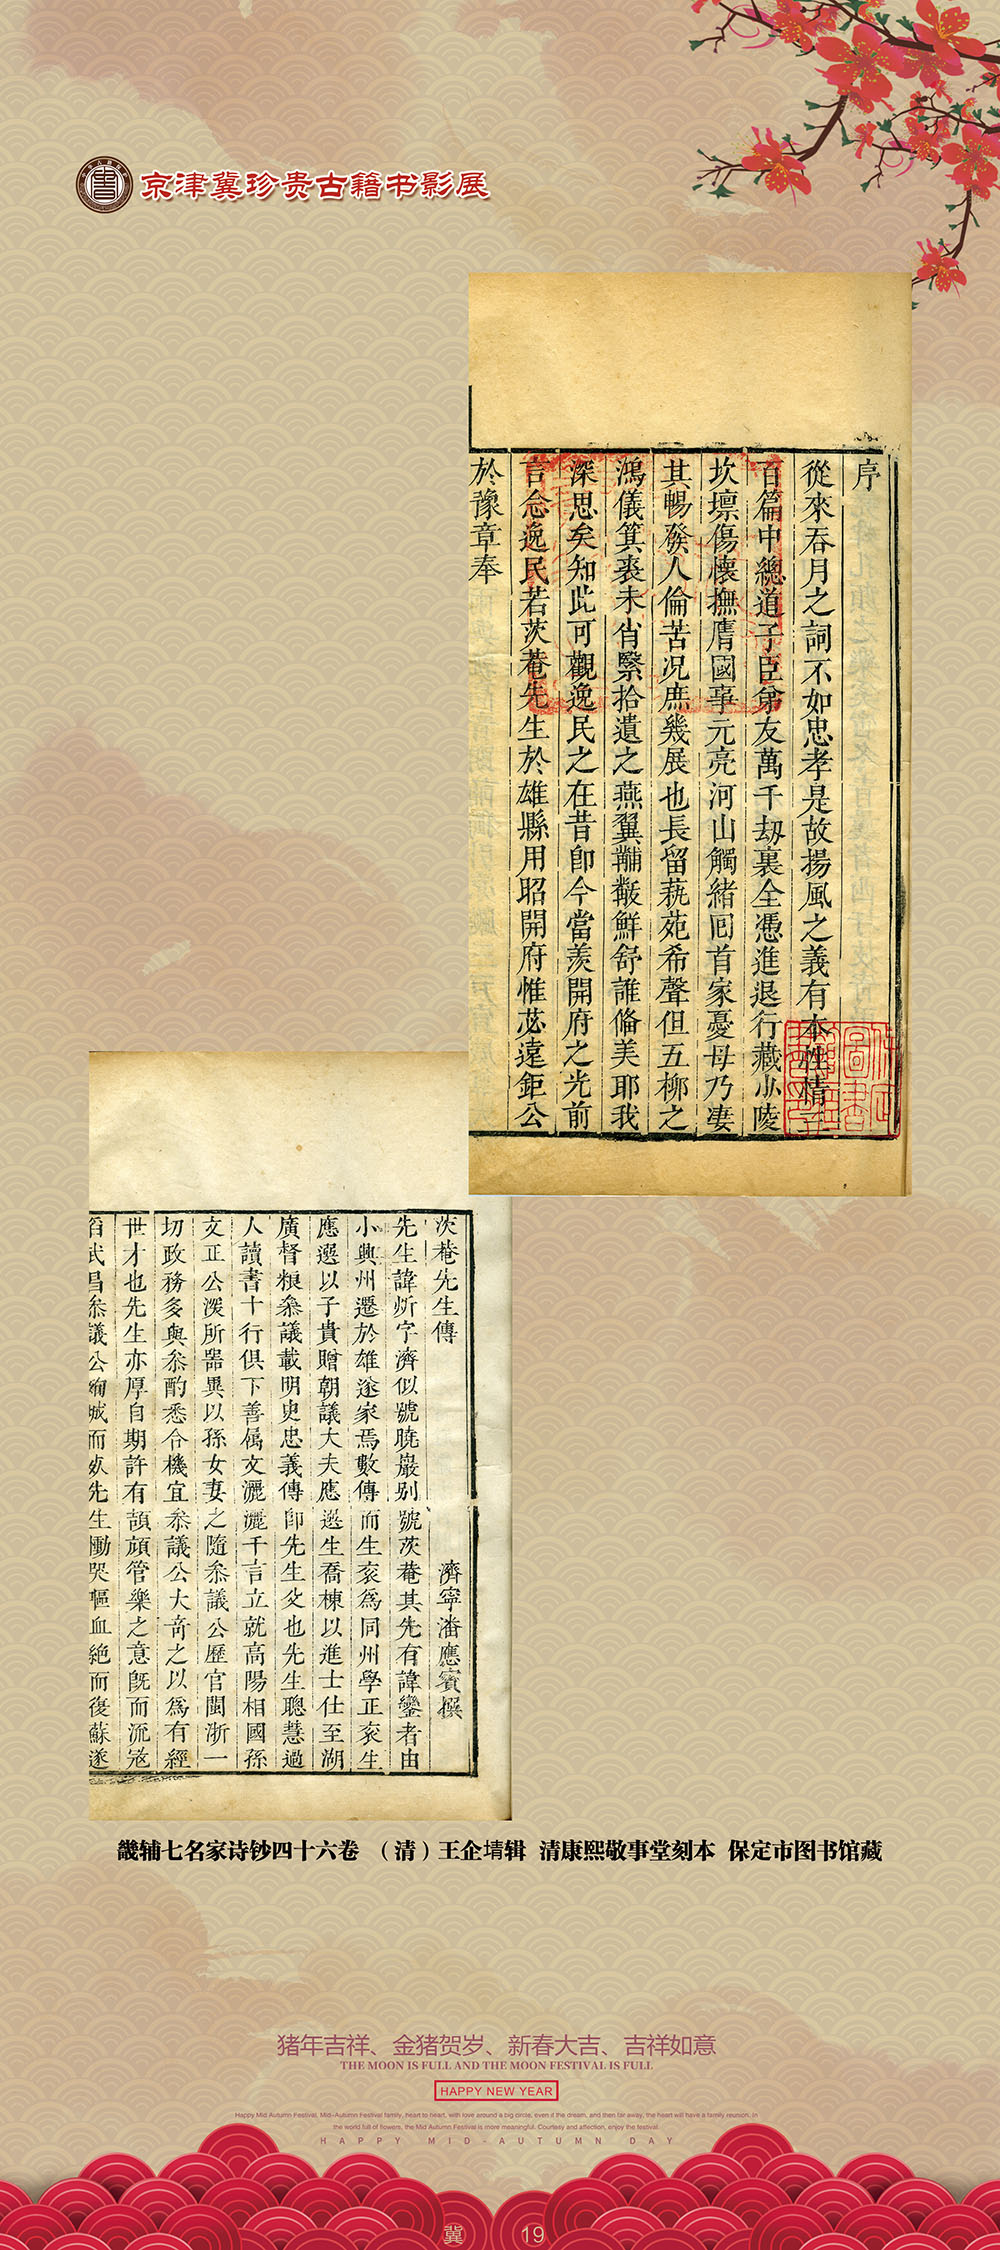 京津冀珍贵古籍书影展
序
從來吞月之詞不如忠孝是故揚風之義有本性情三
百篇中總道子臣弟友萬千刼裏全憑進退行藏小陵
坎壈傷懷撫膺國事元亮河山觸緒囘首家憂母乃凄
其暢發人倫苦況庶幾展也長留蓺苑希聲但五柳之
鴻儀箕裘未肖緊拾遺之燕翼黼黻鮮舒誰俻美耶我
深思矣知此可觀逸民之在昔卽今當羡開府之光前
言念逸民若茨菴先生於雄縣用昭開府惟苾遠鉅公
於豫章奉
茨菴先生傳
濟寧潘應賓撰
先生諱炘字濟似號曉巖別號茨菴其先有諱鑾者由
小興州遷於雄遂家焉數傳而生衮爲同州學正衮生
應選以子貴贈朝議大夫應選生喬棟以進士仕至湖
廣督粮叅議載明史忠義傳卽先生父也先生聰慧過
人讀書十行俱下善属文灑灑千言立就高陽相國孫
文正公深所器異以孫女妻之隨叅議公歷官閩浙一
切政務多與叅酌悉合機宜叅議公大奇之以爲有經
世才也先生亦厚自期許有頡頏管樂之意旣而流宼
蹈武昌叅議公殉城而死先生慟哭嘔血絶而復蘇遂
畿辅七名家诗钞四十六卷 （清）王企埥辑 清康熙敬事堂刻本 保定市图书馆藏
猪年吉祥、金猪贺岁、新春大吉、吉祥如意
THE MOON IS FULL AND THE MOON FESTIVAL IS FULL
HAPPY NEW YEAR
Happy Mid Autumn Festival, Mid-Autumn Festival family, heart to heart, with love around a big circle, even if the dream, and then far away, the heart will have a family reunion. In
the world full of flowers, the Mid Autumn Festival is more meaningful. Courtesy and affection, enjoy the festival.
HAPPY MID-AUTUMN DAY
冀 19